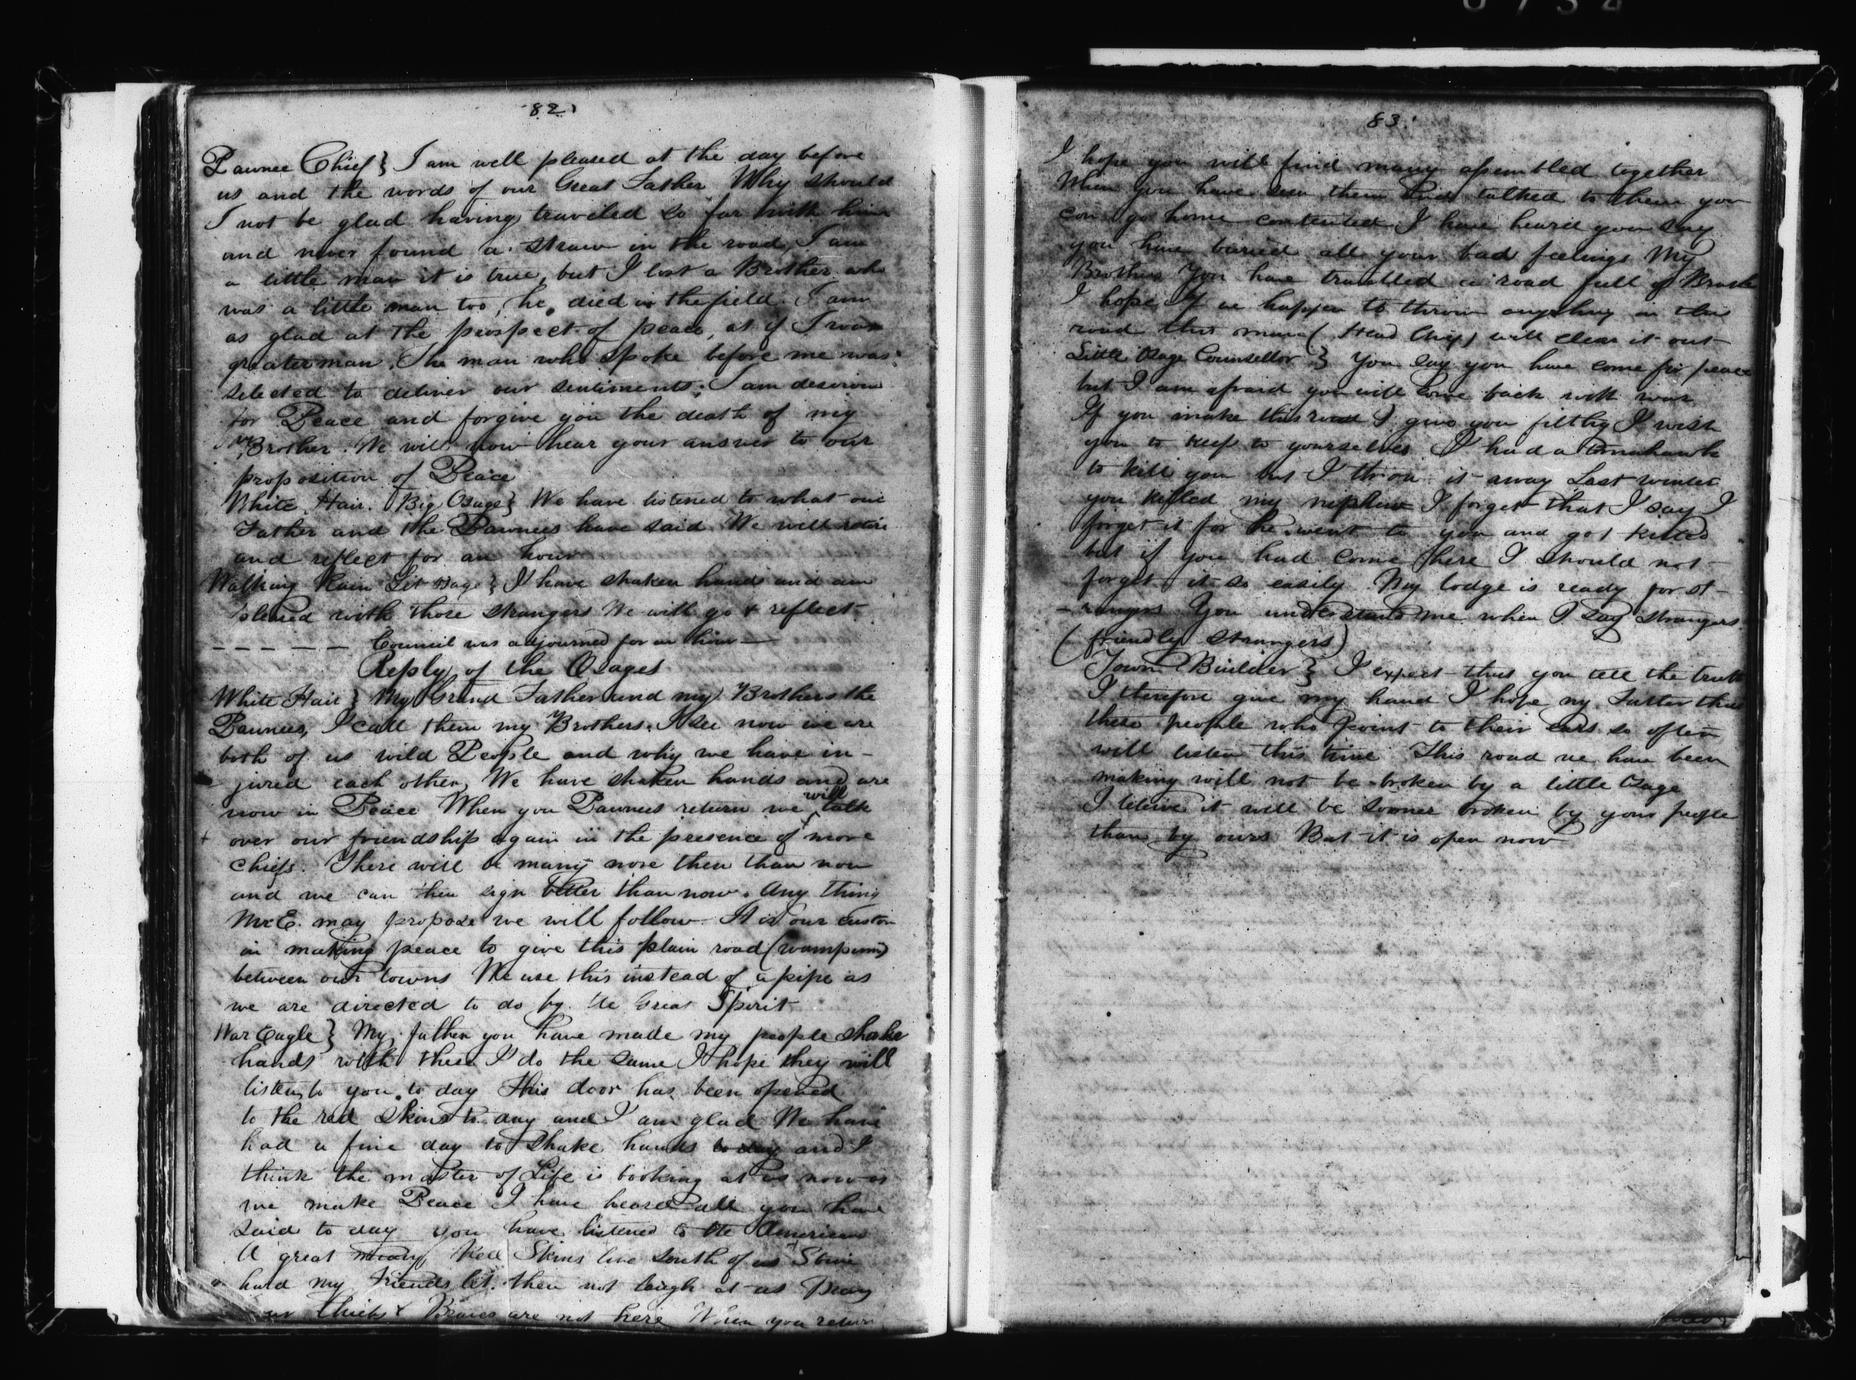 82
Pawnee Chief } I am well pleased at the day before
us and the words of our Great Father Why should
I not be glad having traveled so far with him
and never found a straw in the road, I am
a little man it is true, but I lost a Brother who
was a little man too, he died in the field. I am
as glad at the prospect of peace, as if I was
greater man. The man who spoke before me was
selected to deliver our sentiments. I am desirous
for Peace and forgive you the death of my
Brother. We will now hear your answer to our
proposition of Peace
White Hair. Big Osage } We have listened to what our
Father and the Pawnees have said We will retire
and reflect for an hour
Walking Rain Lit Osage } I have shaken hands and am
pleased with those strangers We will go & reflect
Council was adjourned for an hour
Reply of the Osages
White Hair } My Grand Father and my Brothers the
Pawnees, I call them my Brothers. I see now we are
both of us wild People and why we have in-
jured each other, We have shaken hands and are
now in Peace When you Pawnees return we will talk
over our friendship again in the presence of more
Chiefs. There will be many more then than now
and we can then sign better than now. Any thing
Mr E. may propose we will follow. It is our custom
in making peace to give this plain road (wampum)
between our towns We use this instead of a pipe as
we are directed to do by the Great Spirit
War Eagle } My father you have made my people shake
hands with these I do the same I hope they will
listen to you to day This door has been opened
to the red skins to day and I am glad We have
had a fine day to shake hands to day and I
think the master of Life is looking at us now as
we make Peace I have heard all you have
said to day you have listened to the Americans
A great many Red Skins live South of us Strive
hard my Friends let them not laugh at us Many
our Chiefs & Braves are not here When you return
83
I hope you will find many assembled together
When you have seen them and talked to them you
can go home contented I have heard you say
you have buried all your bad feelings My
Brothers You have travelled a road full of Brush
I hope if we happen to throw anything in this
road this man (Head Chief) will clear it out
Little Osage Counsellor } You say you have come for peace
but I am afraid you will come back with war
If you make this road I give you filthy I wish
you to keep to yourselves I had a tomahawk
to kill you but I throw it away Last winter
you killed my nephew I forget that I say I
forget it for he went to you and got killed
but if you had come here I should not
forget it so easily My lodge is ready for st-
rangers You understand me when I say strangers
(friendly strangers)
Town Builder } I expect that you tell the truth
I therefore give my hand I hope my Father that
these people who point to their ears so often
will listen this time This road we have been
making will not be broken by a little Osage
I believe it will be sooner broken by your people
than by ours But it is open now